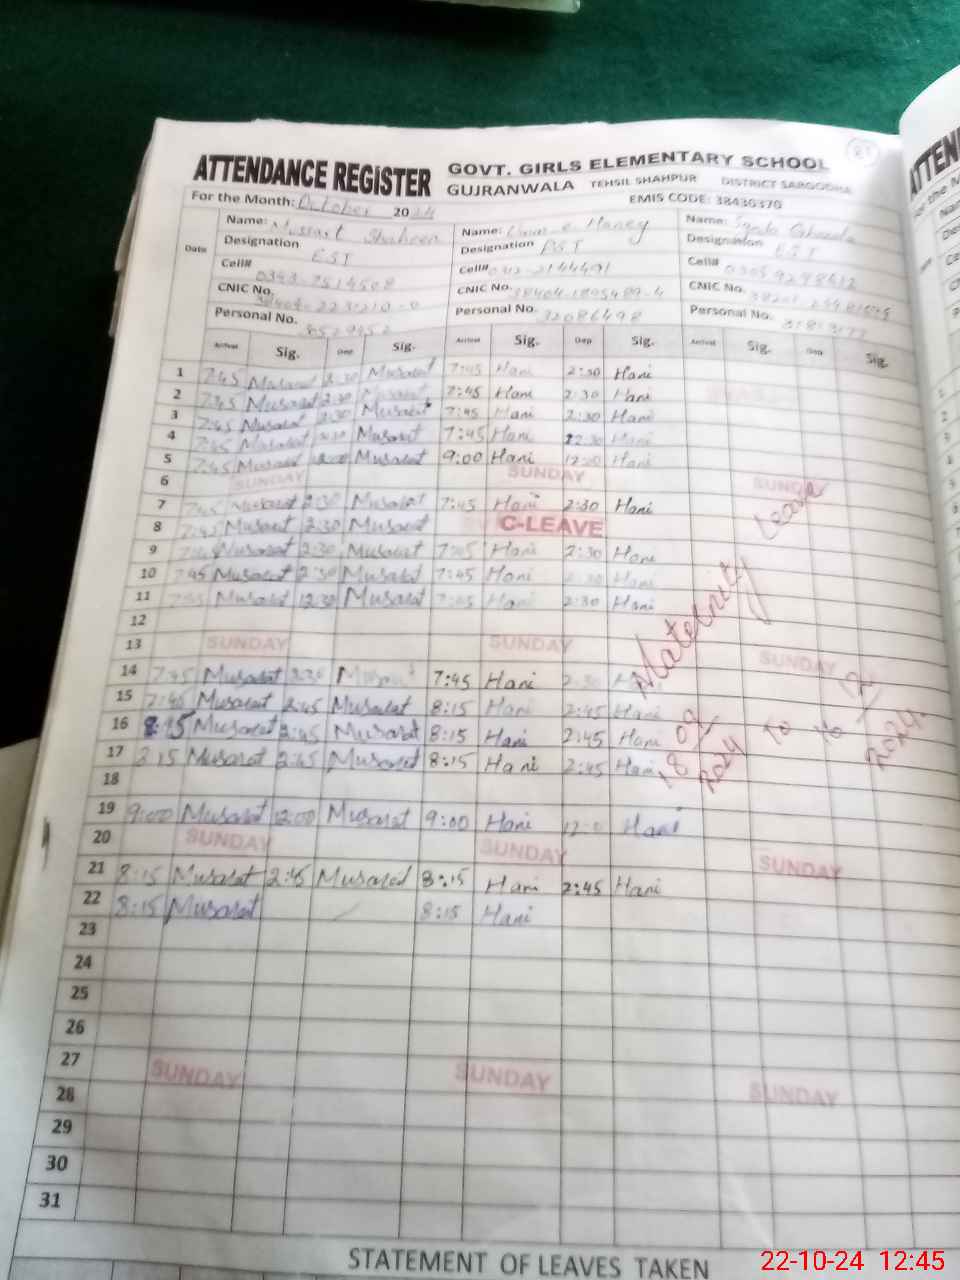 ATTENDANCE REGISTER GOVT. GIRLS ELEMENTARY SCHOOL
GUJRANWALA TEHSIL SHAHPUR DISTRICT SARGODHA
For the Month: October 2024 EMIS CODE: 38430370
Date Name: Mussarat Shaheen Name: Haney Name: Syeda
Designation EST Designation PST Designation EST
Cell# Cell# Cell#
CNIC No. CNIC No. CNIC No.
Personal No. Personal No. 32086498 Personal No.
Arrival Sig. Dep Sig. Arrival Sig. Dep Sig. Arrival Sig. Dep Sig.
1 7:45 Musarat 2:30 Musarat 7:45 Hani 2:30 Hani
2 7:45 Musarat 2:30 Musarat 7:45 Hani 2:30 Hani
3 7:45 Musarat 2:30 Musarat 7:45 Hani 2:30 Hani
4 7:45 Musarat Musarat 7:45 Hani 12:30 Hani
5 7:45 Musarat Musarat 9:00 Hani 12:00 Hani
6 SUNDAY SUNDAY SUNDAY
7 7:45 Musarat 2:30 Musarat 7:45 Hani 2:30 Hani
8 7:45 Musarat 2:30 Musarat C-LEAVE
9 Musarat 2:30 Musarat 7:45 Hani 2:30 Hani
10 7:45 Musarat 2:30 Musarat 7:45 Hani 2:30 Hani
11 7:45 Musarat 12:30 Musarat 7:45 Hani 2:30 Hani
12
13 SUNDAY SUNDAY SUNDAY
14 7:45 Musarat 2:30 Musarat 7:45 Hani 2:30 Hani
15 7:45 Musarat 2:45 Musarat 8:15 Hani 2:45 Hani
16 8:15 Musarat 2:45 Musarat 8:15 Hani 2:45 Hani
17 8:15 Musarat 2:45 Musarat 8:15 Hani 2:45 Hani
18
19 9:00 Musarat 12:00 Musarat 9:00 Hani 12:0 Hani
20 SUNDAY SUNDAY SUNDAY
21 8:15 Musarat 2:45 Musarat 8:15 Hani 2:45 Hani
22 8:15 Musarat 8:15 Hani
23
24
25
26
27 SUNDAY SUNDAY SUNDAY
28
29
30
31
Maternity Leave
18 09 2024 To 12 2024
STATEMENT OF LEAVES TAKEN
22-10-24 12:45